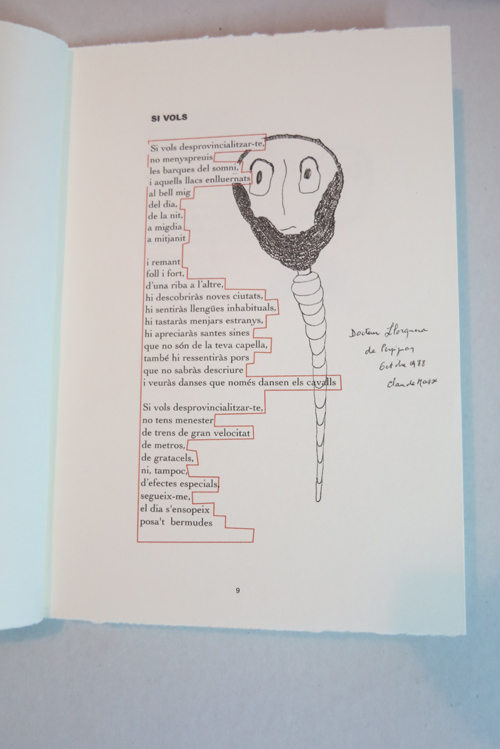 SI VOLS
Si vols desprovincialitzar-te,
no menyspreuis
les barques del somni,
i aquells llacs enlluernats
al bell mig
del dia,
de la nit,
a migdia
a mitjanit
i remant
foll i fort,
d'una riba a l'altre,
hi descobriràs noves ciutats,
hi sentiràs llengües inhabituals,
hi tastaràs menjars estranys,
hi apreciaràs santes sines
que no són de la teva capella,
també hi ressentiràs pors
que no sabràs descriure
i veuràs danses que només dansen els cavalls
Si vols desprovincialitzar-te,
no tens menester
de trens de gran velocitat
de metros,
de gratacels,
ni, tampoc,
d'efectes especials,
segueix-me,
el dia s'ensopeix
posa't bermudes
Docteur
de Perpignan
1988
Claude
9